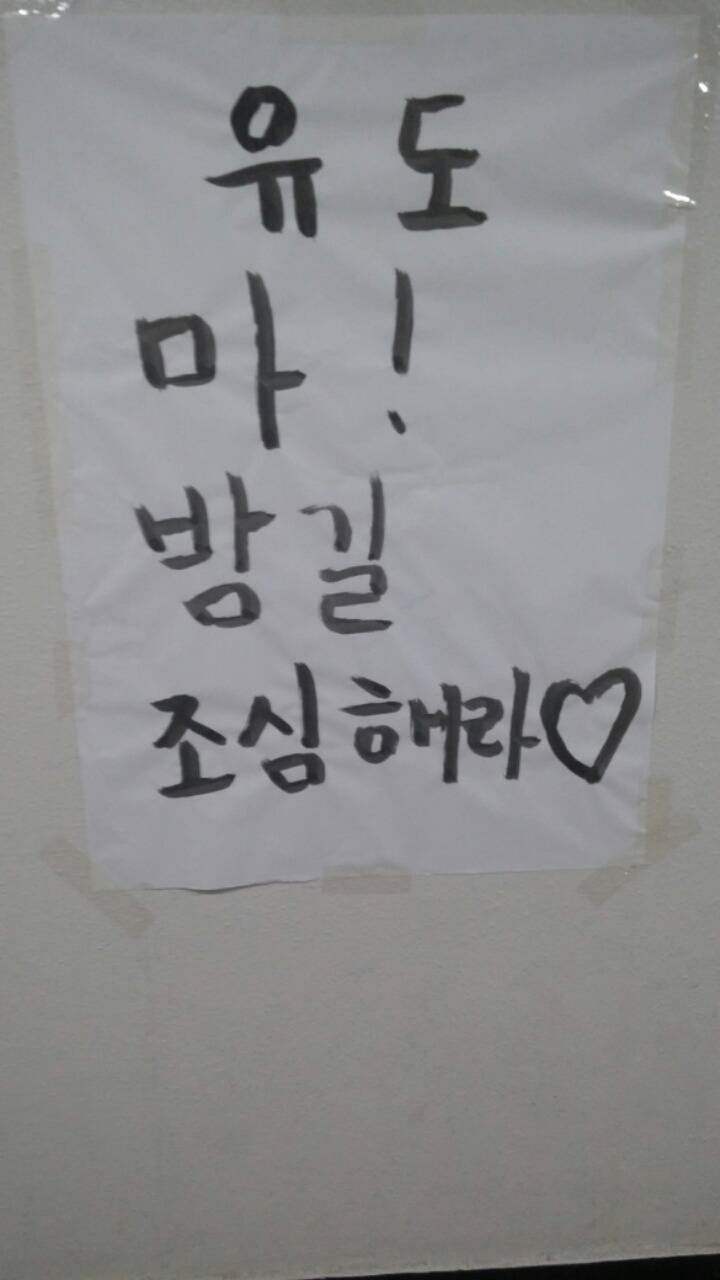 유도
마!
밤길
조심해라♡